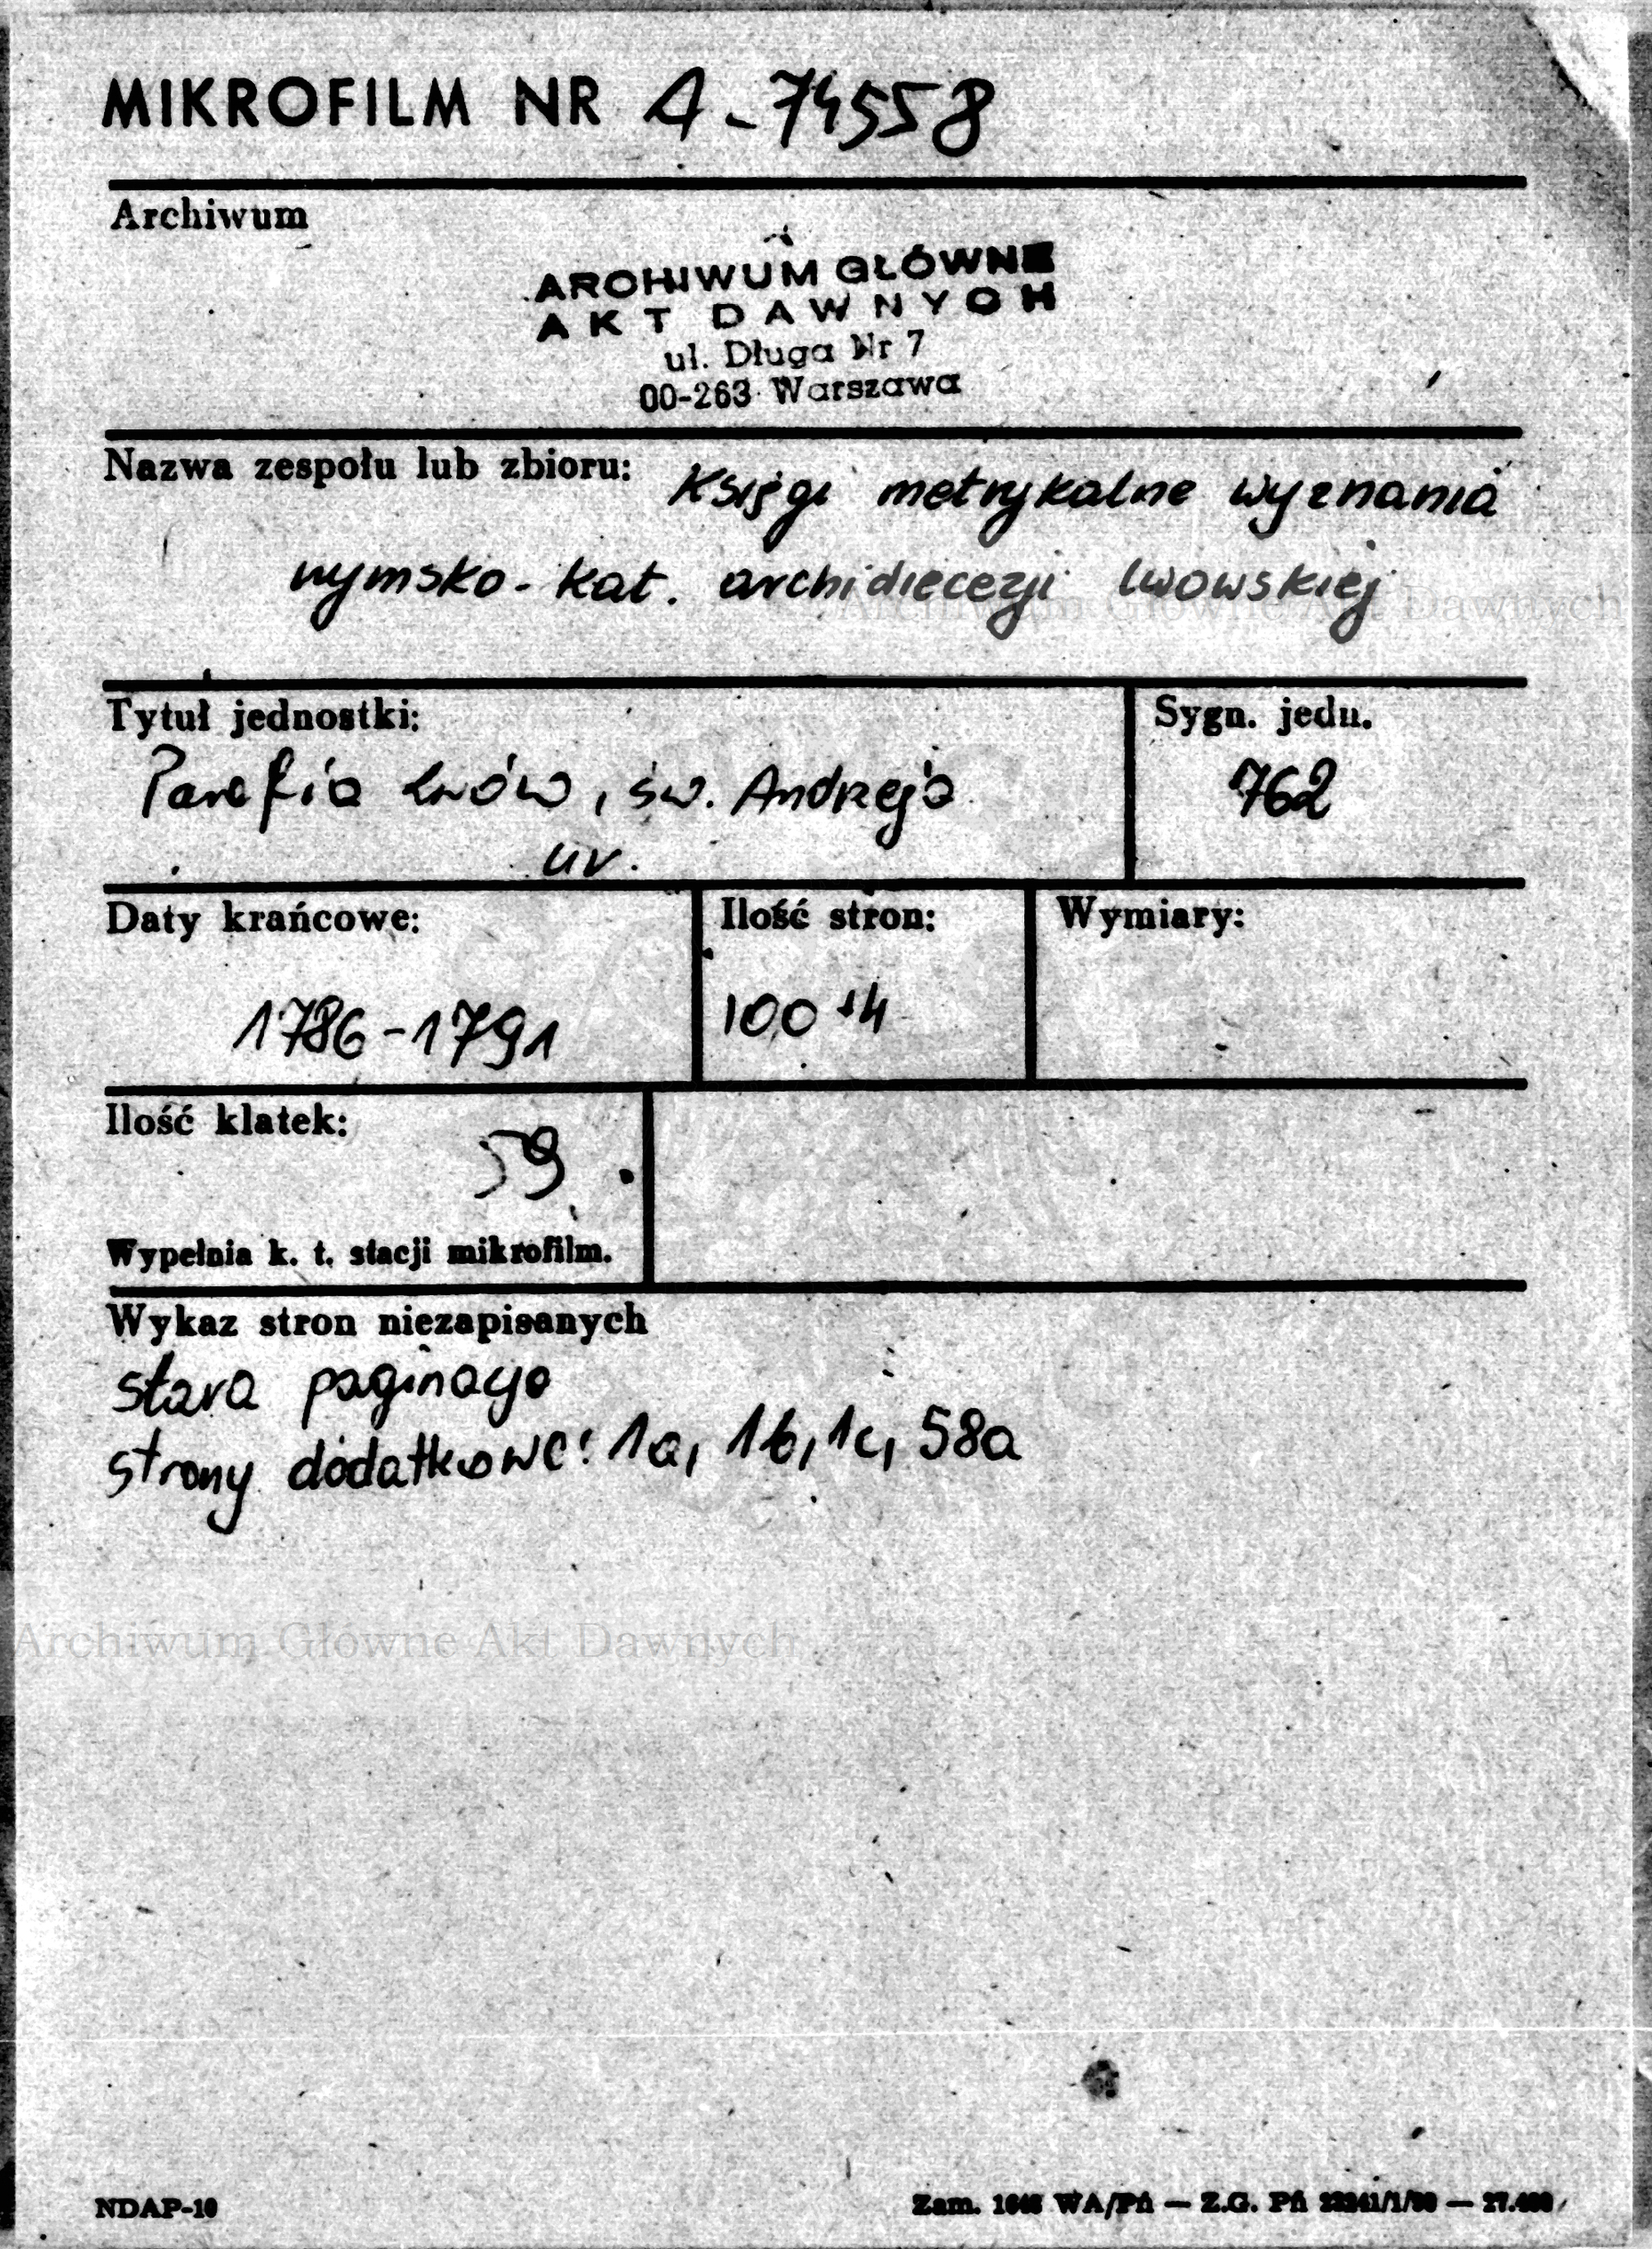 MIKROFILM NR A-74558
Archiwum
ARCHIWUM GŁÓWNE
AKT DAWNYCH
ul. Długa Nr 7
00-263 Warszawa
Nazwa zespołu lub zbioru: Księgi metrykalne wyznania
rymsko-kat. archidiecezji lwowskiej
Archiwum Główne Akt Dawnych
Tytuł jednostki:
Parafia Lwów, św. Andrzeja
ur.
Sygn. jedn.
762
Daty krańcowe:
1786-1791
Ilość stron:
100+4
Wymiary:
Ilość klatek:
59
Wypełnia k. t. stacji mikrofilm.
Wykaz stron niezapisanych
stara paginacja
strony dodatkowe: 1a, 1b, 1c, 58a
Archiwum Główne Akt Dawnych
NDAP-10
Zam. WA/Pń — Z.G. Pń